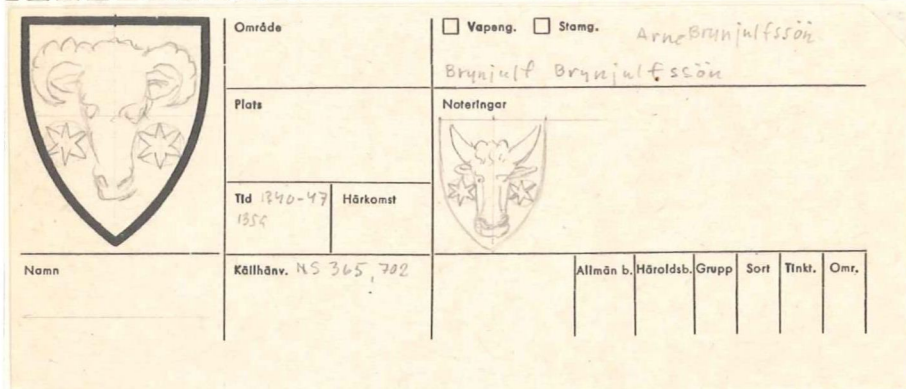 Område
Vapeng. Stamg. Arne Brunjulfssön
Brynjulf Brynjulfssön
Plats
Noteringar
Tid 1340-47 Härkomst
Namn
Källhänv. NS 365, 702
Allmän b. Häroldsb. Grupp Sort Tinkt. Omr.